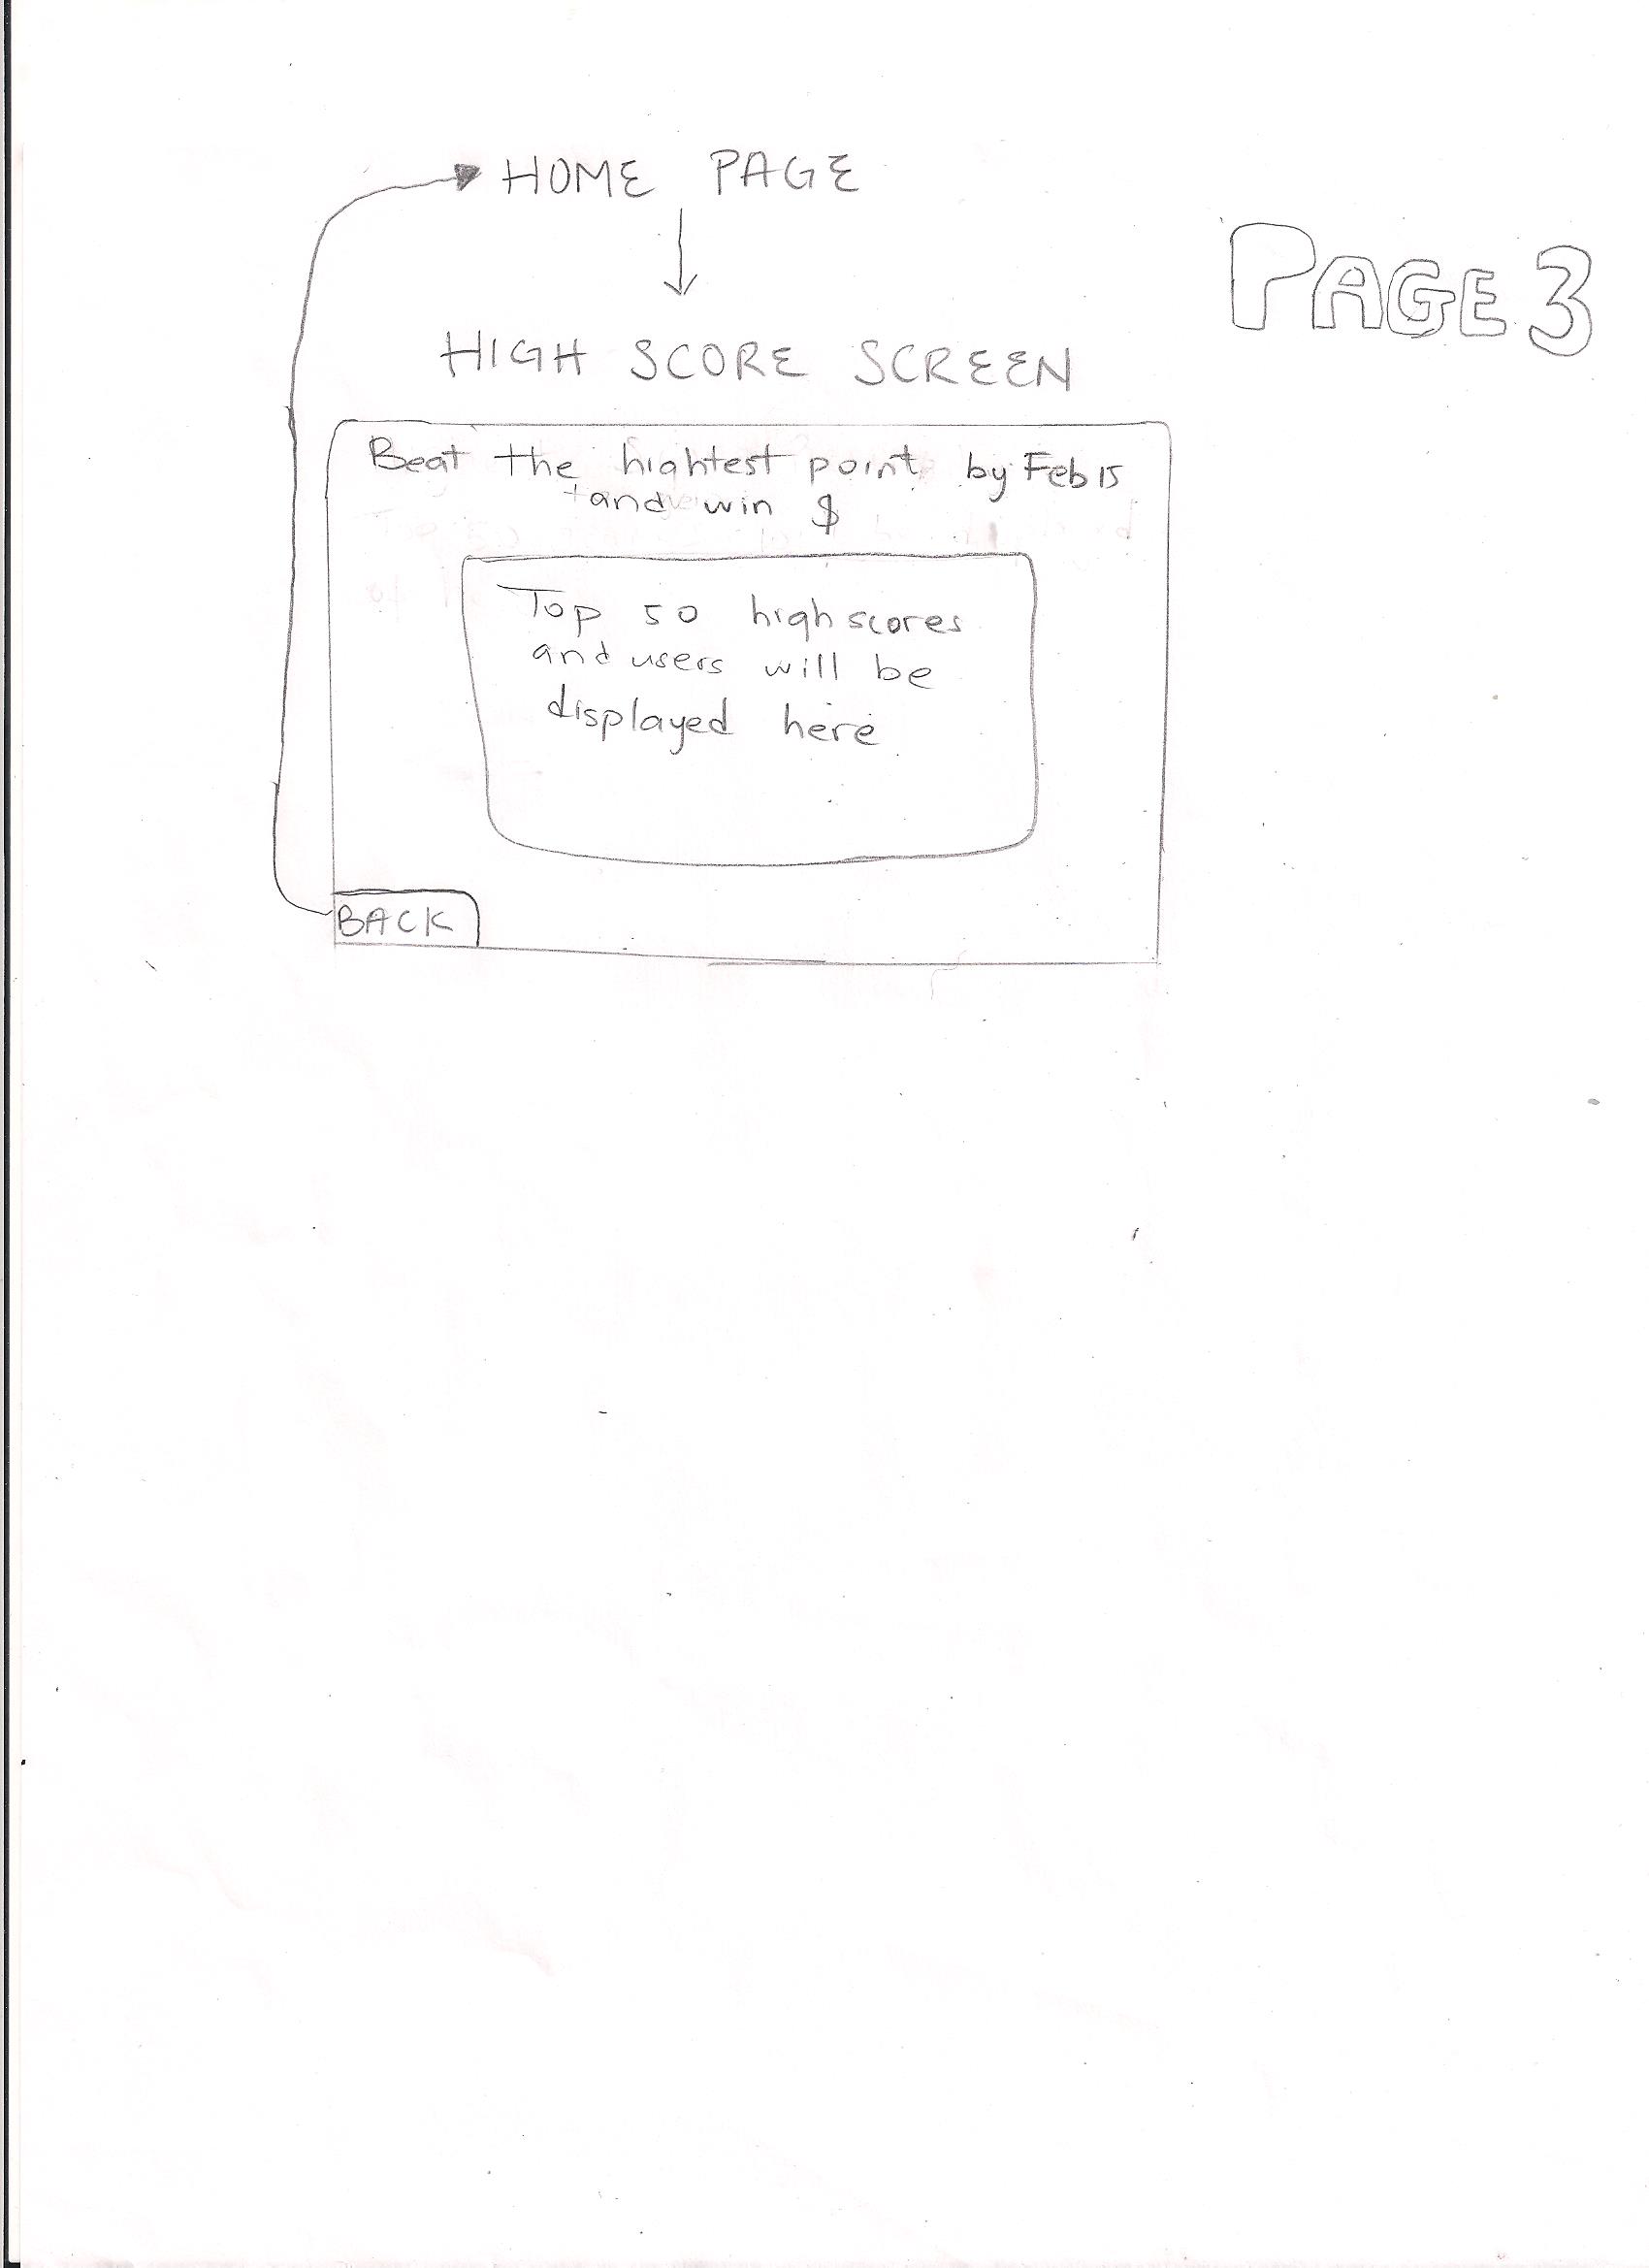 HOME PAGE
PAGE 3
HIGH SCORE SCREEN
Beat the hightest point by Feb 15
and win $
Top 50 highscores
and users will be
displayed here
BACK